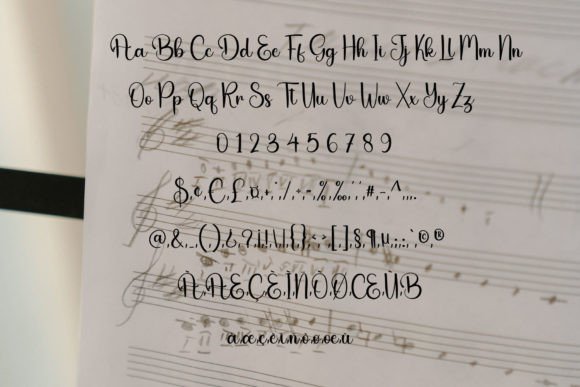 Aa Bb Cc Dd Ee Ff Gg Hh Ii Jj Kk Ll Mm Nn
Oo Pp Qq Rr Ss Tt Uu Vv Ww Xx Yy Zz
0 1 2 3 4 5 6 7 8 9
$,¢,€,£,¤,+,/,÷,=,%,‰,',',#,-,^,,,.
@,&,_,(,),¿,?,¡,!,\,|,{,},<,>,[,],§,¶,µ,;,:,`,©,®
À,Æ,Ç,È,Ì,Ñ,Ò,Ø,Œ,Ù,ß
à,æ,ç,è,ì,ñ,ò,ø,œ,ù